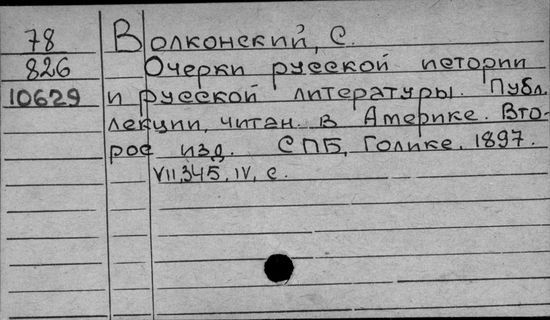 78 Волконский, С.
826 Очерки русской истории
10629 и русской литературы. Публ.
лекции, читан. в Америке. Вто-
рое изд. СПБ, Голике. 1897.
VII,345, IV, с.